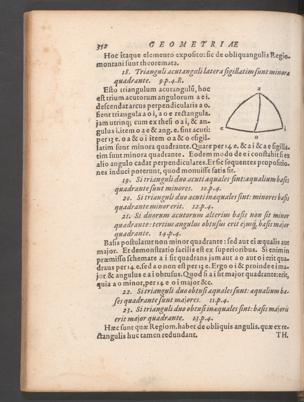 352 GEOMETRIAE
Hoc itaque elemento exposito: sic de obliquangulis Regio-
montani sunt theoremata.
18. Trianguli acutanguli latera sigillatim sunt minora
quadrante. 9.p.4.R.
Esto triangulum acutangulum, hoc
est trium acutorum angulorum a e i.
descendat arcus perpendicularis a o.
sient triangula a o i, a o e rectangula.
jam utrinq; cum ex thesi o a i, &
angulus i, item o a e & ang. e. sint acuti:
per 12 e. o a & o i item o a & e o sigil-
latim sunt minora quadrante. Quare per 14 e. & a i & a e sigilla-
tim sunt minora quadrante. Eodem modo de e i constabit ex
alio angulo cadat perpendicularis. Et sic sequentes propositio-
nes induci poterunt, quod monuisse satis sit.
19. Si trianguli duo acuti aequales sint: aequalium bases
quadrante sunt minores. 10.p.4.
20. Si trianguli duo acuti inaequales sint: minoris basis
quadrante minor erit. 12.p.4.
21. Si duorum acutorum alterius basis non sit minor
quadrante: tertius angulus obtusus erit ejusq; basis major
quadrante. 14.p.4.
Basis postulatur non minor quadrante: sed aut ei aequalis aut
major. Et demonstratio facilis est ex superioribus. Si enim in
praemisso schemate a i sit quadrans jam aut a o aut o i erit qua-
drans per 14 e. sed a o non est per 12 e. Ergo o i & proinde e i ma-
jor & angulus e a i obtusus. Quod si a i sit major quadrante: erit,
quia a o minor, per 14 e o i major &c.
22. Si trianguli duo obtusi aequales sunt: aequalium ba-
ses quadrante sunt majores. 11.p.4.
23. Si trianguli duo obtusi inaequales sint: basis majoris
erit major quadrante. 13.p.4.
Haec sunt quae Regiom. habet de obliquis angulis. quae ex re-
ctangulis huc tamen redundant. TH.
a
e
o
i